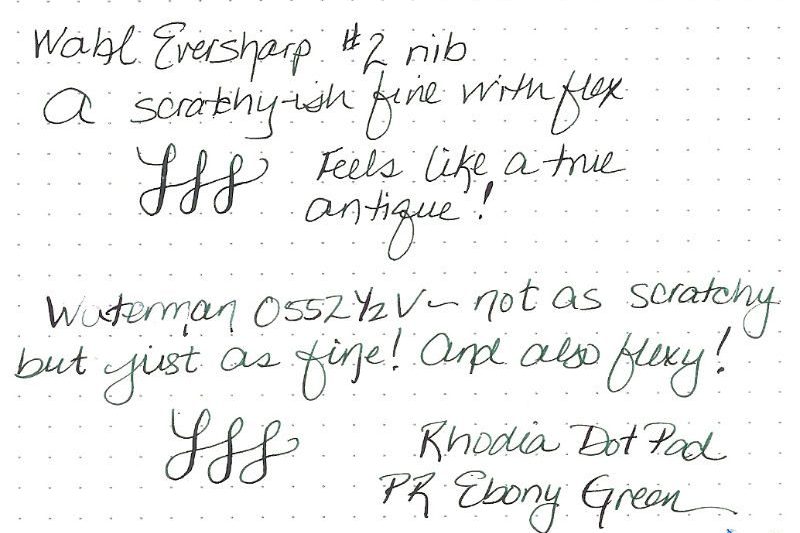 Wahl Eversharp #2 nib
A scratchy-ish fine with flex
Feels like a true
antique!
Waterman 0552½V~ not as scratchy
but just as fine! And also flexy!
Rhodia Dot Pad
PR Ebony Green